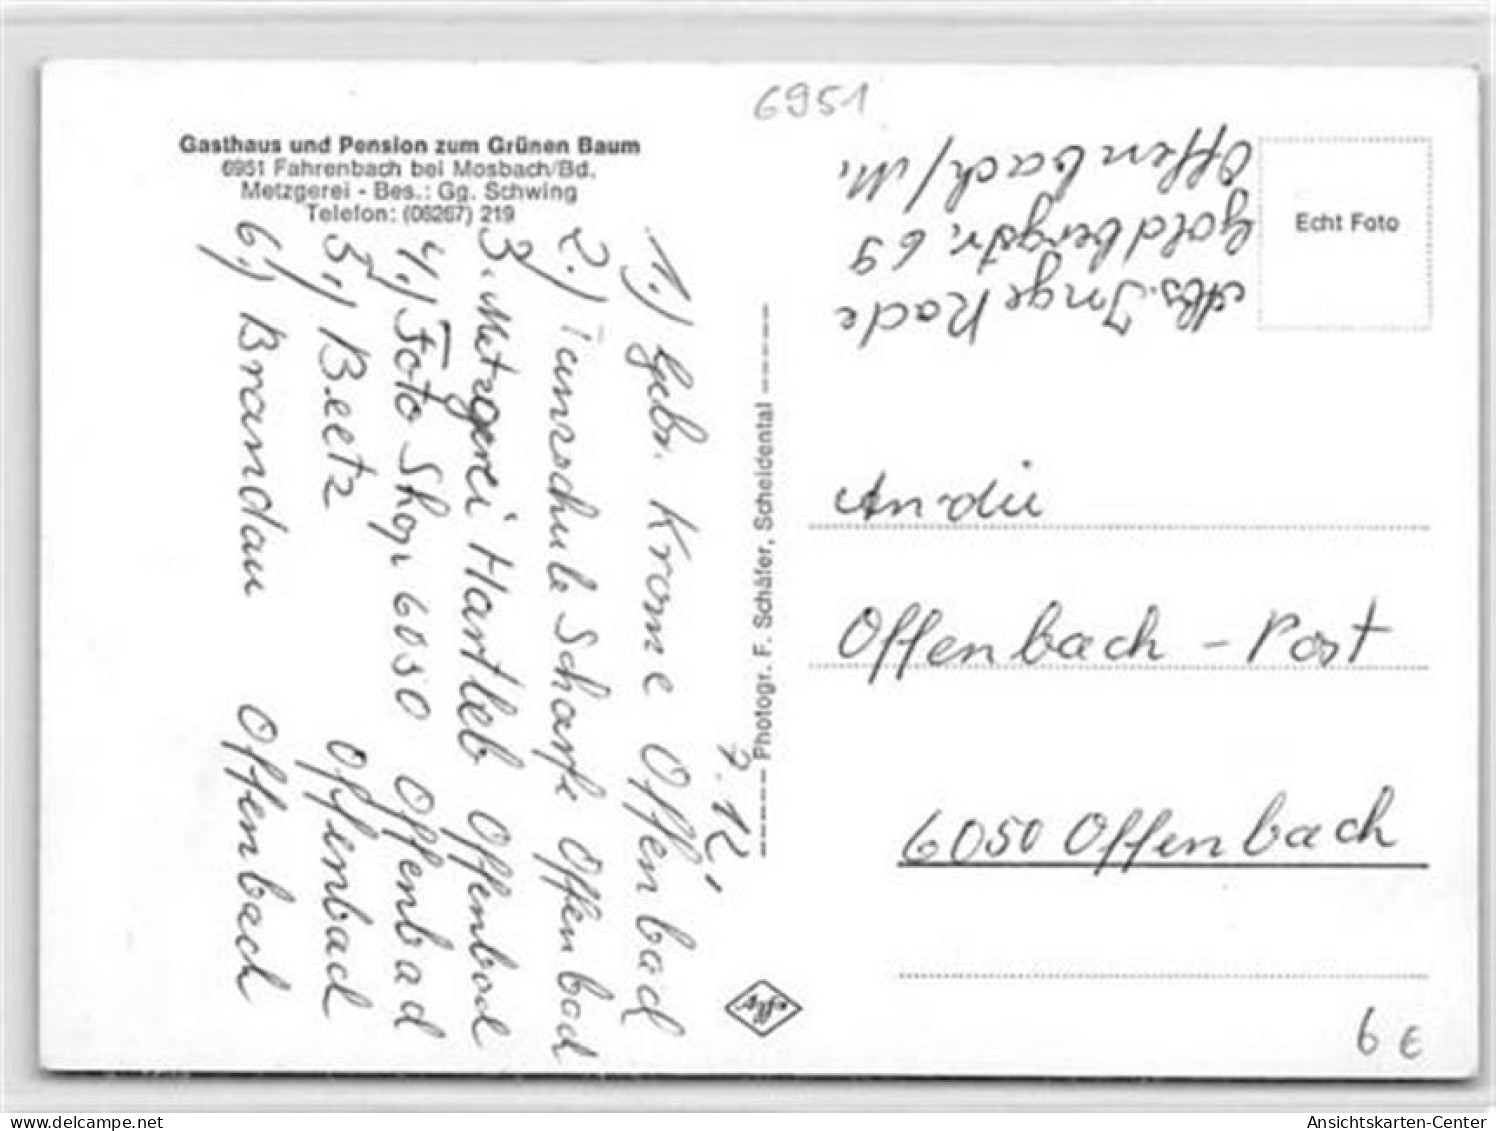 6951
Gasthaus und Pension zum Grünen Baum
6951 Fahrenbach bei Mosbach/Bd.
Metzgerei - Bes.: Gg. Schwing
Telefon: (06267) 219
1.) Gebr. Krome Offenbach
2.) Tanzschule Scharfe Offenbach
3. Metzgerei Hartleb Offenbach
4.) Foto Shop 6050 Offenbach
5.) Beetz Offenbach
6.) Brandau Offenbach
Photogr. F. Schäfer, Scheidental
Abs. Inge Rade
Goldbergstr. 69
Offenbach/M.
Echt Foto
An die
Offenbach-Post
6050 Offenbach
6 €
delcampe.net
Ansichtskarten-Center